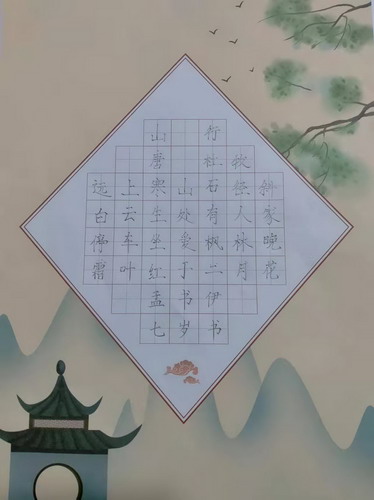 山 行
唐 杜牧
远上寒山石径斜
白云生处有人家
停车坐爱枫林晚
霜叶红于二月花
孟书伊
七岁书